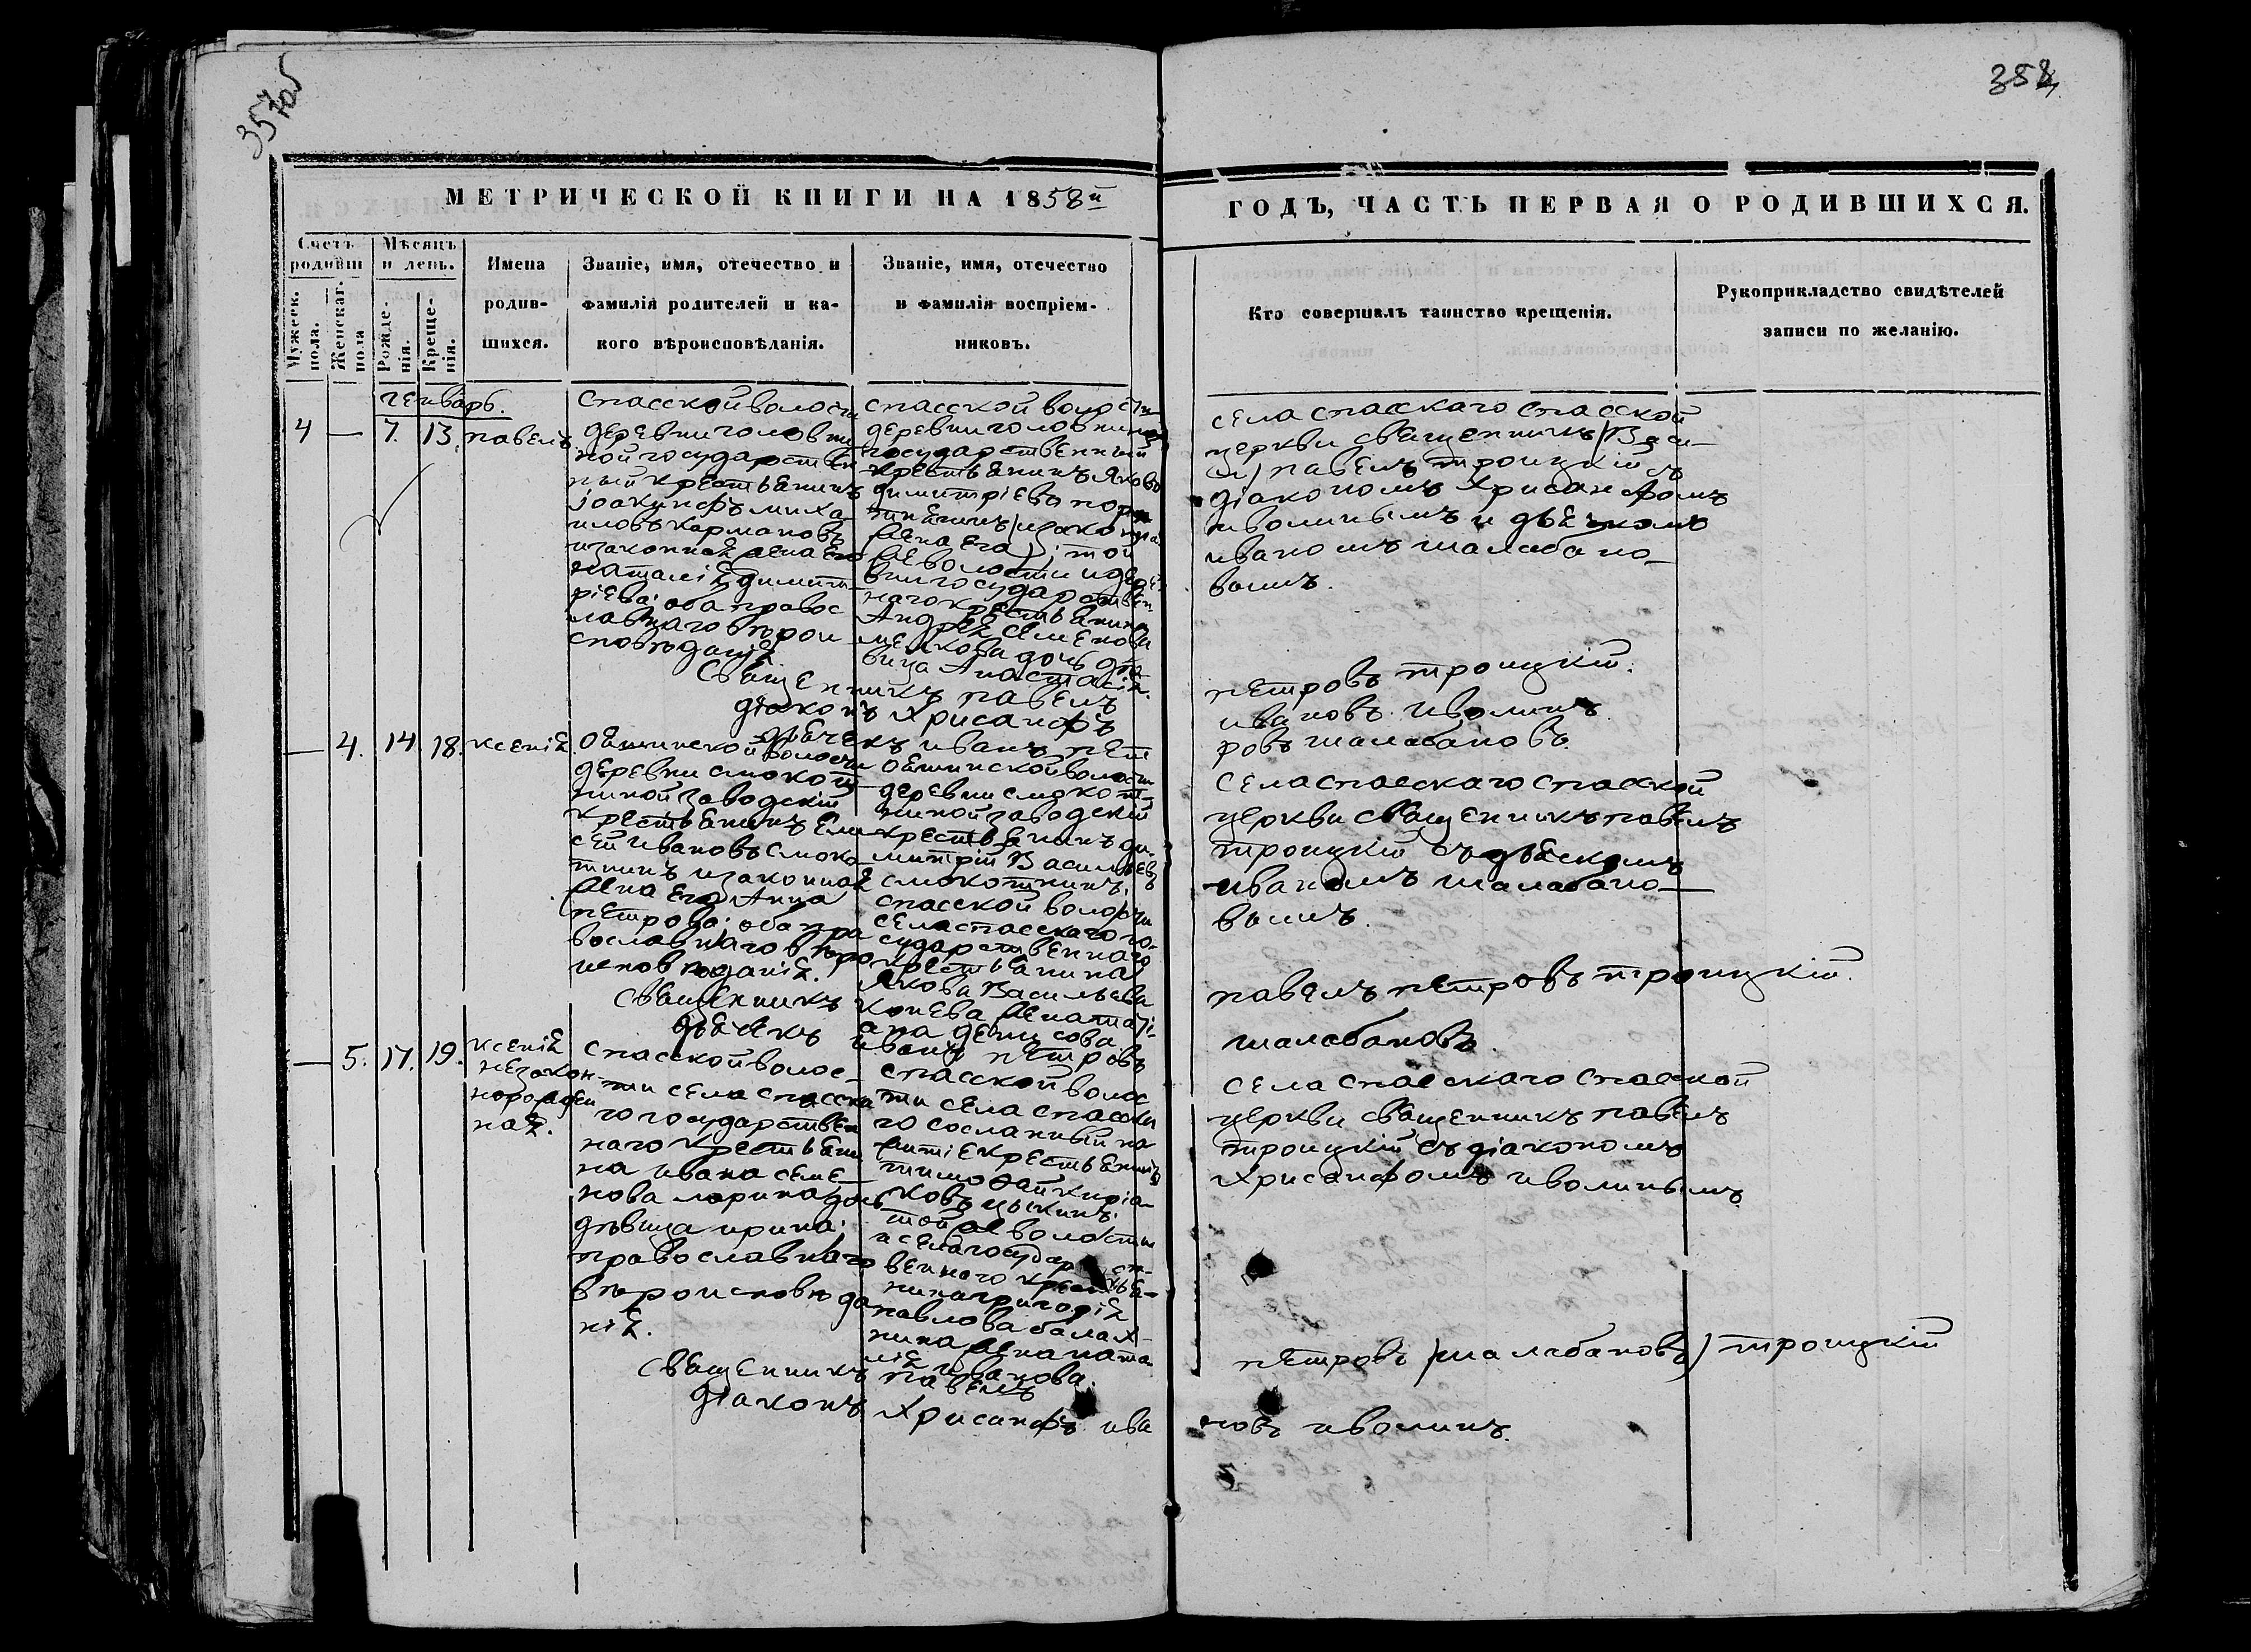 357об
358
МЕТРИЧЕСКОЙ КНИГИ НА 1858й
ГОДЪ, ЧАСТЬ ПЕРВАЯ О РОДИВШИХСЯ.
Счетъ родивш
Мужеск. пола.
Женскаг. пола
Мѣсяцъ и день.
Рожденія.
Крещенія.
Имена
родив-
шихся.
Званіе, имя, отечество и
фамилія родителей и ка-
кого вѣроисповѣданія.
Званіе, имя, отечество
и фамилія воспріем-
никовъ.
Кто совершалъ таинство крещенія.
Рукоприкладство свидѣтелей
записи по желанію.
генварь.
4 — 7. 13. павелъ
спасской волости
деревни головни
ной государствен
ный крестьянинъ
іоакинфъ миха
иловъ кармановъ
и законная жена его
наталія димит
ріева: оба правос
лавнаго вѣрои
сповѣданія
спасской волости
деревни головниной
государственный
крестьянинъ Яковъ
димитріевъ
жена его); той
же волости и дерев
ни государствен
наго крестьянина
Андрея семенова
дочь дѣ
вица Анастасія.
села спасскаго спасской
церкви священникъ
павелъ троицкій съ
діакономъ Хрисанфомъ
иволинымъ и дьячкомъ
иваномъ шалабано-
вымъ.
священникъ павелъ петровъ троицкій.
діаконъ Хрисанфъ ивановъ иволинъ
дьячекъ иванъ петровъ шалабановъ.
— 4. 14 18. ксенія
волости
деревни смокот
ниной заводскій
крестьянинъ Ели
сей ивановъ смоко
тнинъ и законная
жена его Анна
петрова: оба пра
вославнаго вѣро
исповѣданія.
волости
деревни смокот
ниной заводскій
крестьянинъ ди
митрій Васильевъ
смокотнинъ.
спасской волости
села спасскаго го-
сударственнаго
крестьянина
Якова Васильева
конева жена тат і-
ана денисова
села спасскаго спасской
церкви священникъ павелъ
троицкій съ дьячкомъ
иваномъ шалабано-
вымъ.
священникъ павелъ петровъ троицкій.
дьячекъ иванъ петровъ шалабановъ.
— 5. 17. 19. ксенія
незакон
норожден
ная.
спасской волос-
ти села спасска
го государствен
наго крестьяни
на ивана семе
нова ларина дочь
дѣвица ирина:
православнаго
вѣроисповѣда
нія.
спасской волос
ти села спасска
го сосланный на
житіе крестьянинъ
тимофей киріа-
ковъ цыкинъ.
той же волости
и села государст-
веннаго крестья-
нина григорія
павлова балах-
нина жена ната
лія иванова.
села спасскаго спасской
церкви священникъ павелъ
троицкій съ діакономъ
Хрисанфомъ иволинымъ.
священникъ павелъ петровъ (шалабановъ) троицкій
діаконъ Хрисанфъ ивановъ иволинъ.